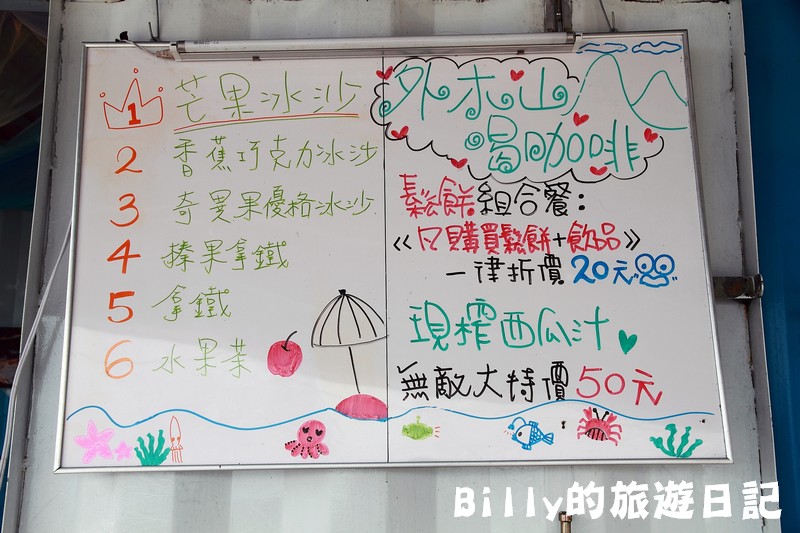 1 芒果冰沙
2 香蕉巧克力冰沙
3 奇異果優格冰沙
4 榛果拿鐵
5 拿鐵
6 水果茶
外木山
喝咖啡
鬆餅組合餐：
《凡購買鬆餅+飲品》
一律折價20元
現榨西瓜汁
無敵大特價50元
Billy的旅遊日記